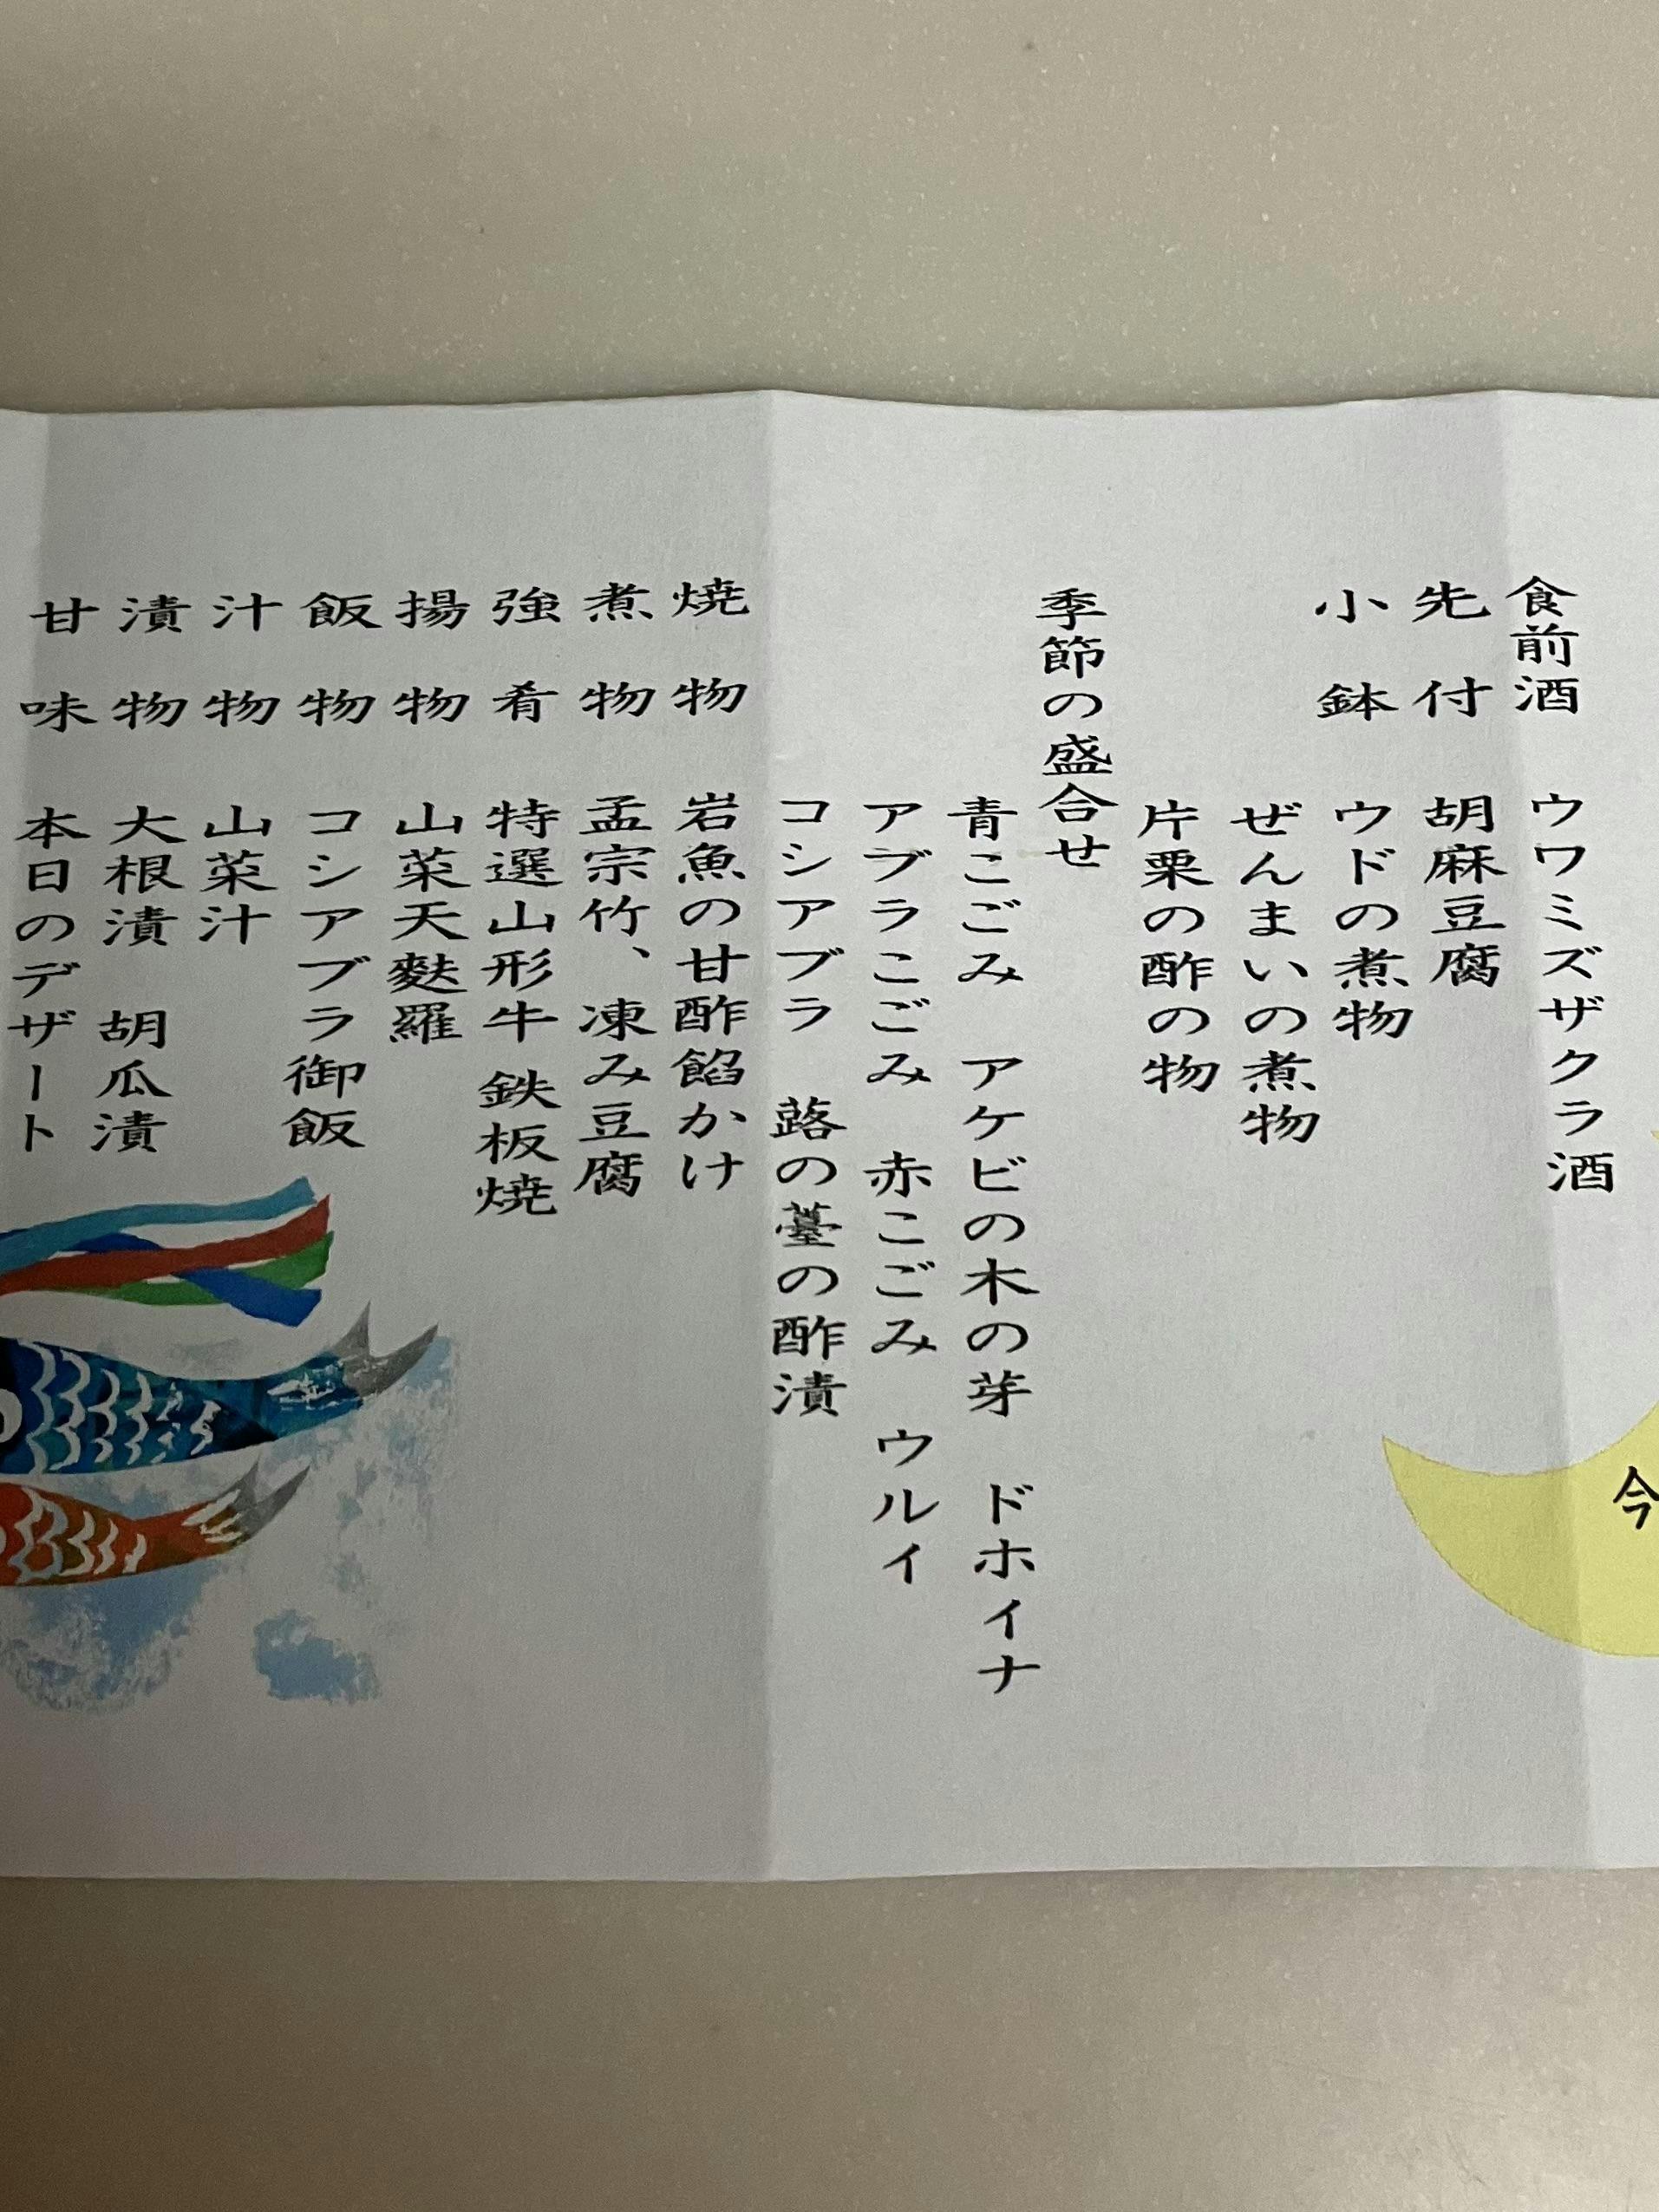 食前酒　ウワミズザクラ酒
先付　胡麻豆腐
小鉢　ウドの煮物
ぜんまいの煮物
片栗の酢の物
季節の盛合せ
青こごみ　アケビの木の芽　ドホイナ
アブラこごみ　赤こごみ　ウルイ
コシアブラ　蕗の薹の酢漬
焼物　岩魚の甘酢餡かけ
煮物　孟宗竹、凍み豆腐
強肴　特選山形牛 鉄板焼
揚物　山菜天麩羅
飯物　コシアブラ御飯
汁物　山菜汁
漬物　大根漬　胡瓜漬
甘味　本日のデザート
今